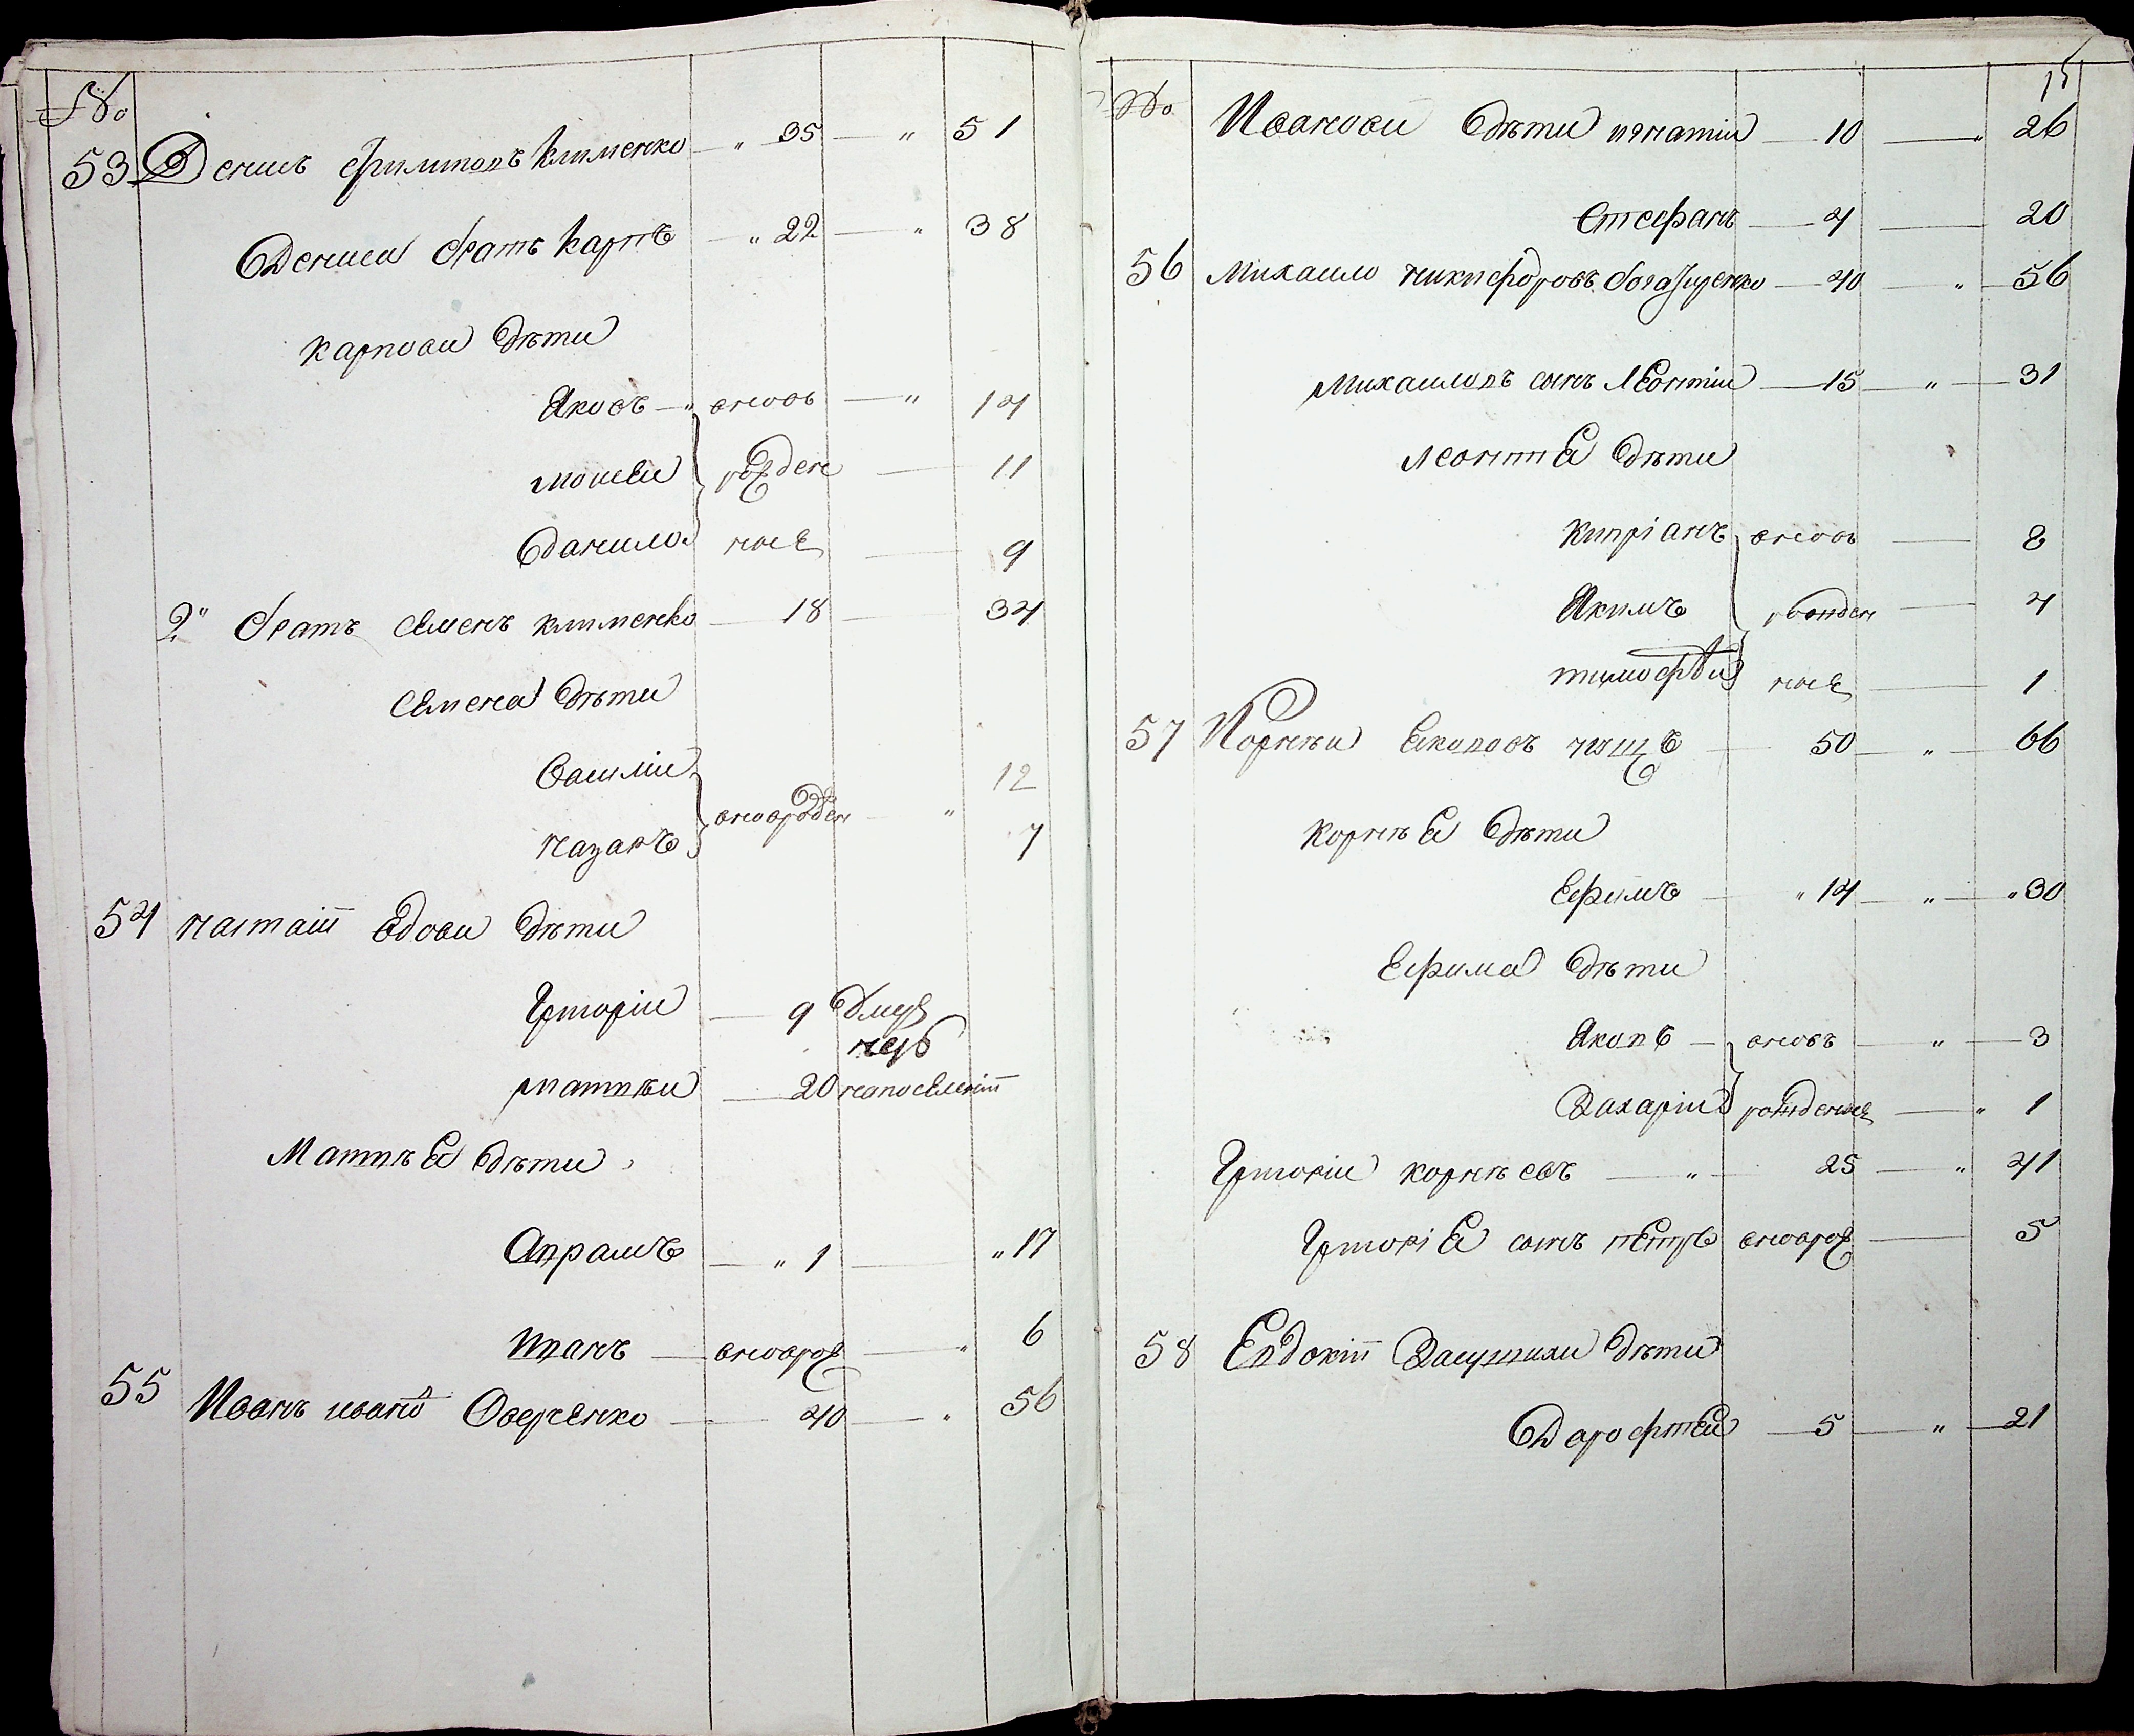 №
53 Денисъ Филиповъ Клименко " 35 — " 51
Дениса братъ Карпъ — " 22 — " 38
Карпови дѣти
Яковъ — " вновь — " 14
Моисеи рожден — 11
Данило ные — 9
2" братъ Семенъ Клименко — 18 — 34
Семена дѣти
Василіи 12
вновърожден — "
Назаръ 7
54 Настасіи вдови дѣти
Григоріи — 9 вмер
Матвѣи — 20 на поселеніи
Матвѣя дѣти
Аврамъ — " 1 — " 17
Иванъ — вноврож — " 6
55 Иванъ Ивано Оверченко — 40 — " 56
№ 15
Иванови дѣти Игнатіи — 10 — " 26
Стефанъ — 4 — 20
56 Михаило Никифоровъ — 40 — " — 56
Михаиловъ синъ Леонтіи — 15 — " — 31
Леонтея дѣти
Кипріанъ вновь — 8
Якимъ рожден — 4
Тимофѣи ные — 1
57 Корнѣи Якововъ — 50 — " — 66
Корнѣя дѣти
Ефимъ — " 14 — " — " 30
Ефима дѣти
Яковъ — вновъ — " — 3
Захаріи рожденые — " 1
Григоріи Корнѣевъ — " — 25 — " 41
Григорія синъ Петръ вноврож — 5
58 Евдокіи дѣти
Дарофтеи — 5 — " — 21